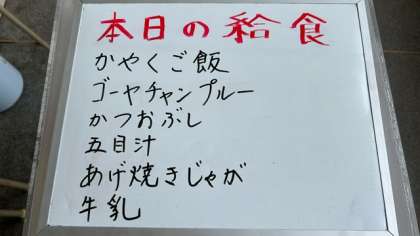 本日の給食
かやくご飯
ゴーヤチャンプルー
かつおぶし
五目汁
あげ焼きじゃが
牛乳